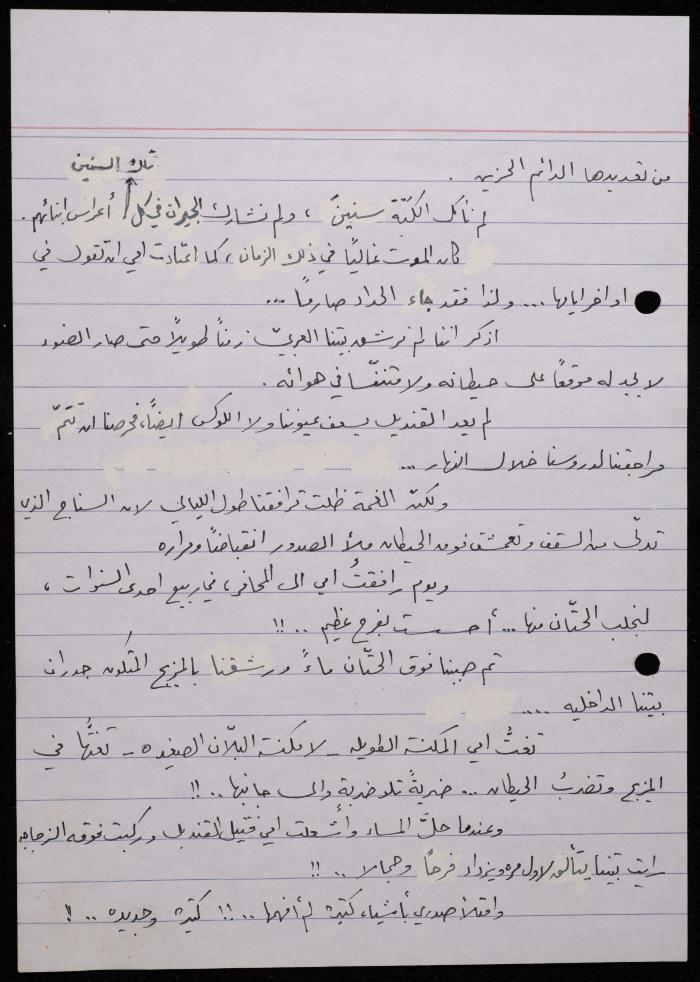 تلك السنين
من تعديدها الدائم الحزين .
لم نأكل الكبّة سنينَ ، ولم نشارك الجيران في كل أعراس ابنائهم .
كان الموت غالياً في ذلك الزمان ، كما اعتادت امي ان تقول في
اواخر ايامها ... ولذا فقد جاء الحداد صارماً ...
اذكر اننا لم نرشق بيتنا العربيّ زمناً طويلاً حتى صار الضوء
لا يجد له موقعاً على حيطانه ولا متنفّساً في هوائه .
لم يعد القنديل يسعف عيوننا ولا اللوكس ايضاً، فحرصنا ان تتمّ
مراجعتنا لدروسنا خلال النهار ...
ولكنّ الغمة ظلت ترافقنا طول الليالي لان السناج الذي
تدلّى من السقف وتعمشق فوق الحيطان ملأ الصدور انقباضاً ومراره
ويوم رافقتُ امي الى المحافر ، في ربيع احدى السنوات ،
لنجلب الحتّان منها ... أحسست بفرح عظيم .. !!
ثم صببنا فوق الحتّان ماءً ورشقنا بالمزيج المتكون جدران
بيتنا الداخليه ....
تغتُّ امي المكنسة الطويله - لا مكنسة البلّان الصغيره - تغتّها في
المزيج وتضربُ الحيطان ... ضربةً تلو ضربة والى جانبها .. !!
وعندما حلّ المساء وأشعلت امي فتيل القنديل وركبت فوقه الزجاجه
رايت بيتنا يتألق لاول مره ويزداد فرحاً وجمالا .. !!
وامتلأ صدري بأشياء كثيرة لم أفهمها .. !! كثيرة وجديده .. !